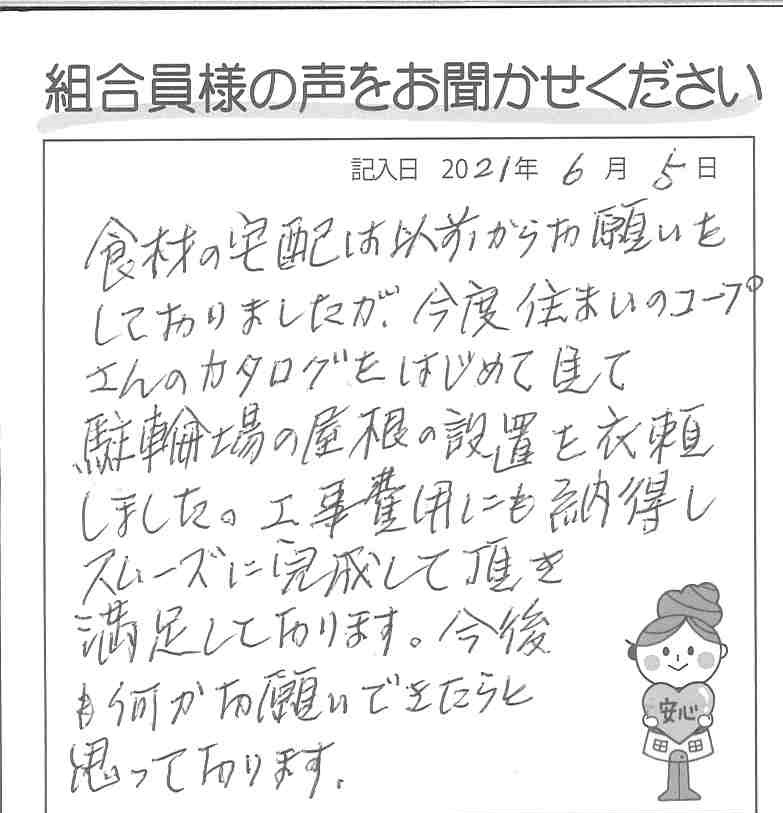 組合員様の声をお聞かせください
記入日 2021年 6月 5日
食材の宅配は以前からお願いを
しておりましたが、今度住まいのコープ
さんのカタログをはじめて見て
駐輪場の屋根の設置を衣頼
しました。工事費用にも納得し
スムーズに完成して頂き
満足しております。今後
も何かお願いできたらと
思っております。
安心